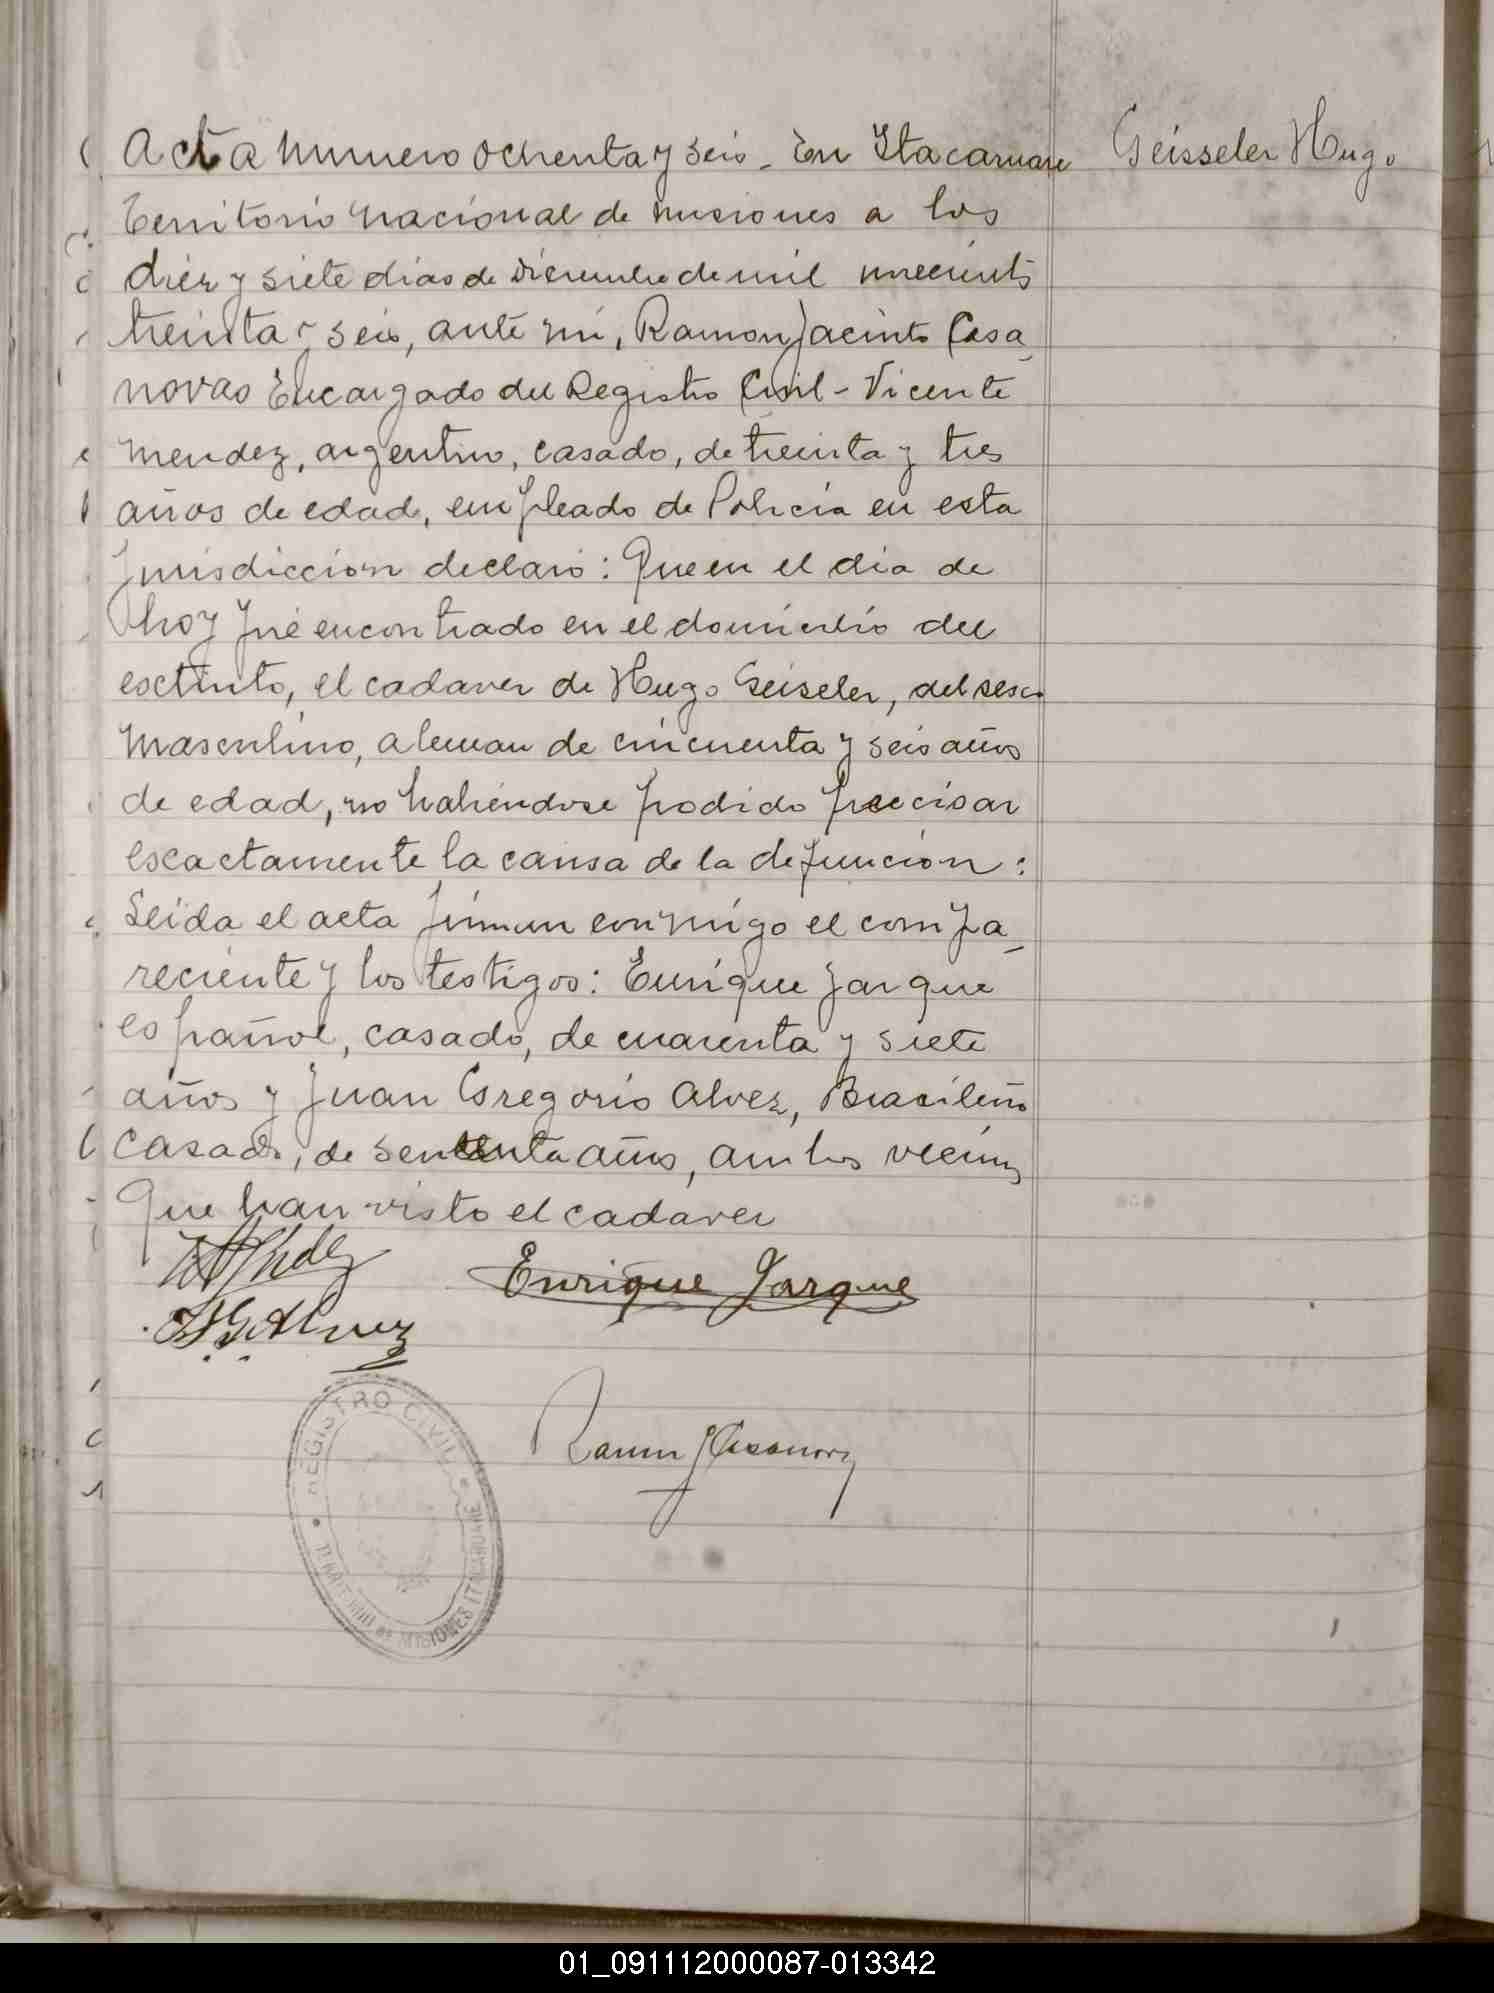 Acta numero ochenta y seis - En Itacaruare
Geisseler Hugo
territorio nacional de misiones a los
diez y siete dias de Diciembre de mil novecientos
treinta y seis, ante mi, Ramon Jacinto Casa
novas Encargado del Registro Civil - Vicente
Mendez, argentino, casado, de treinta y tres
años de edad, empleado de Policia en esta
jurisdiccion declaró: Que en el dia de
hoy fué encontrado en el domicilio del
esctinto, el cadaver de Hugo Geiseler, del sesco
masculino, aleman de cincuenta y seis años
de edad, no habiendose podido precisar
escactamente la causa de la defuncion:
Leida el acta firman conmigo el compa
reciente y los testigos: Enrique Jarque
español, casado, de cuarenta y siete
años y Juan Gregorio Alvez, Brasileño
casado, de años, ambos vecinos
que han visto el cadaver
Enrique Jarque
J G Alvez
Ramon J Casanovas
REGISTRO CIVIL
TERRITORIO DE MISIONES ITACARUARE
01_091112000087-013342